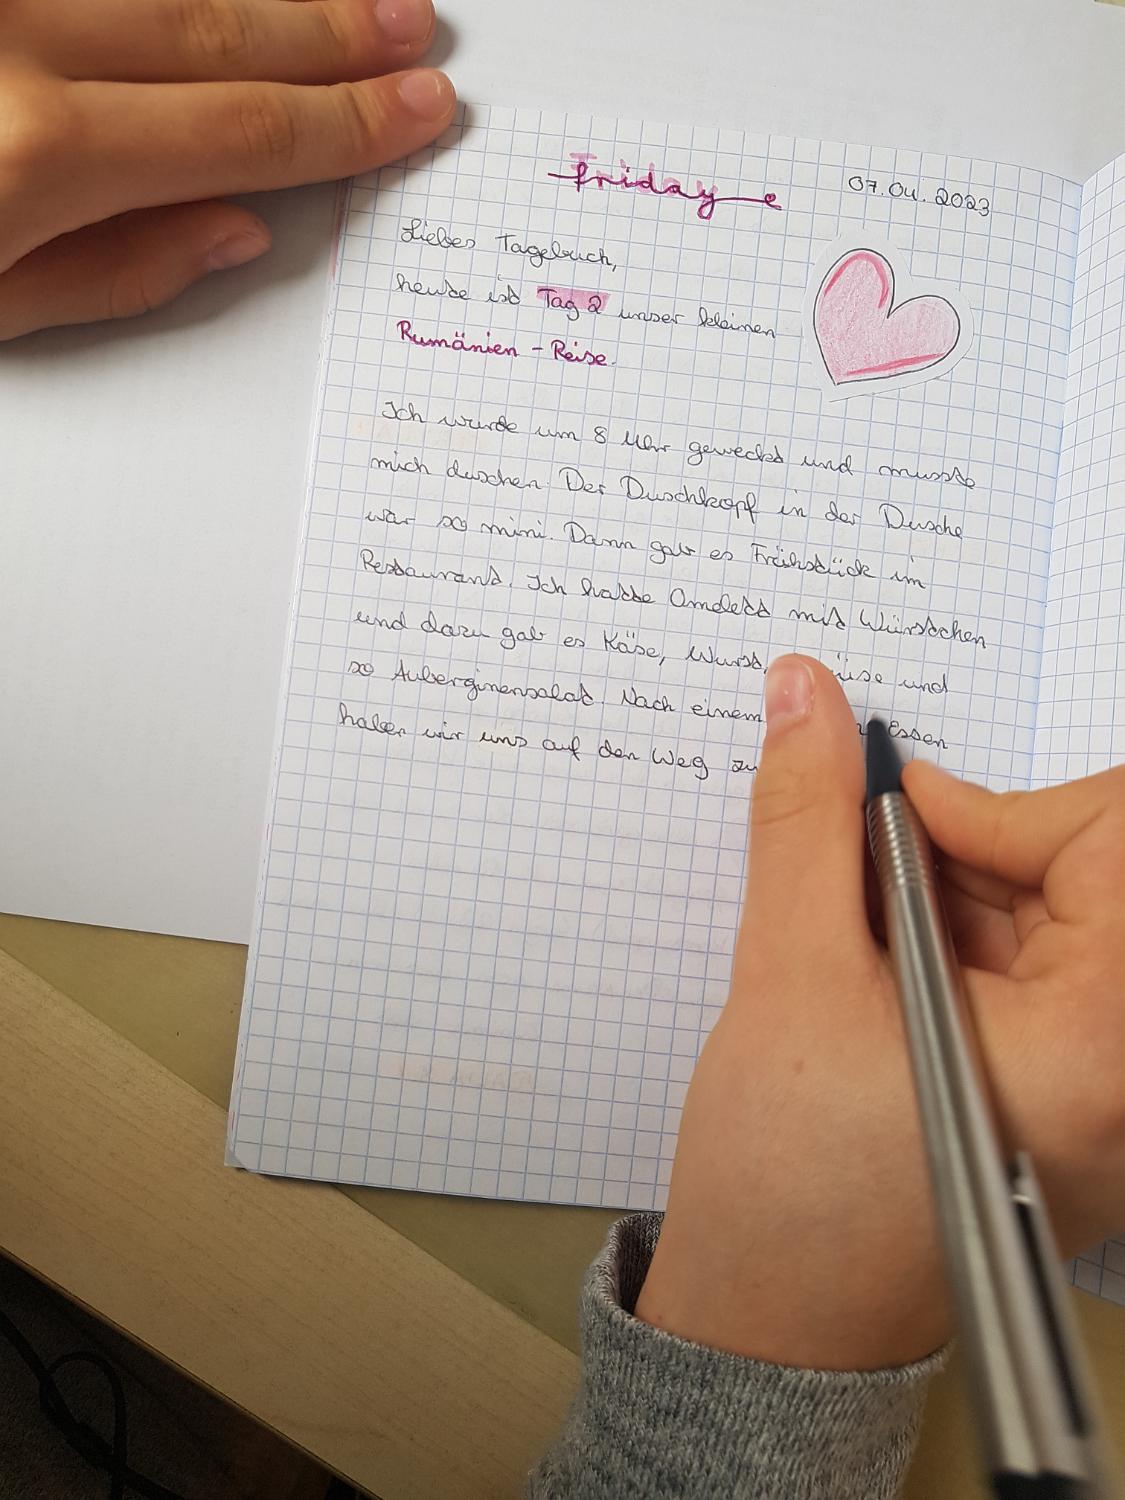 Friday
07.04.2023
Liebes Tagebuch,
heute ist Tag 2 unser kleinen
Rumänien - Reise.
Ich wurde um 8 Uhr geweckt und musste
mich duschen. Der Duschkopf in der Dusche
war so mini. Dann gab es Frühstück im
Restaurant. Ich hatte Omelett mit Würstchen
und dazu gab es Käse, Wurst, und
so Auberginensalat. Nach einem Essen
haben wir uns auf den Weg